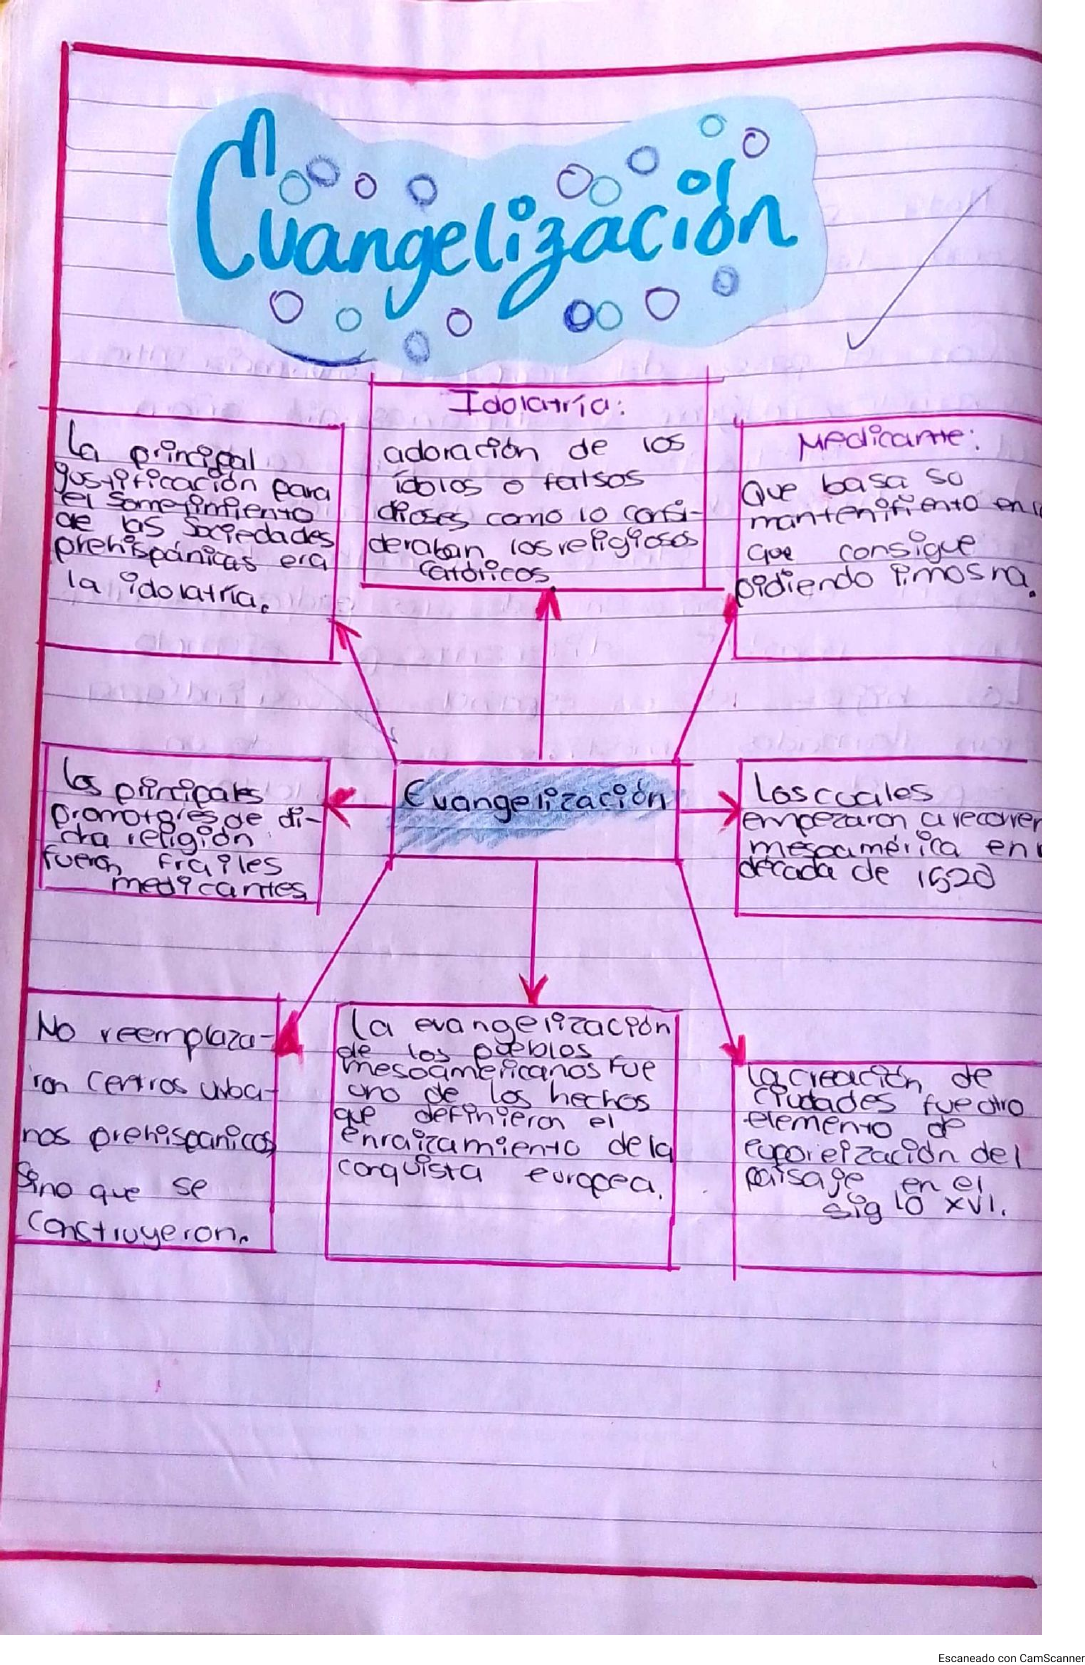 Evangelización
Idolatría:
adoración de los
ídolos o falsos
dioses como lo consi-
deraban los religiosos
católicos
La principal
justificación para
el sometimiento
de las sociedades
prehispánicas era
la idolatría.
Medicante:
Que basa so
mantenimiento en
que consigue
pidiendo limosna.
Evangelización
Los principales
promotores de di-
cha religión
fueron frailes
medicantes
Los cuales
empezaron a recorrer
mesoamérica en
década de 1520
No reemplaza-
ron centros urba-
nos prehispanicos
Sino que se
construyeron.
La evangelización
de los pueblos
mesoamericanos fue
uno de los hechos
que definieron el
enraizamiento de la
conquista europea.
La creación de
ciudades fue otro
elemento de
del
paisaje en el
siglo XVI.
Escaneado con CamScanner